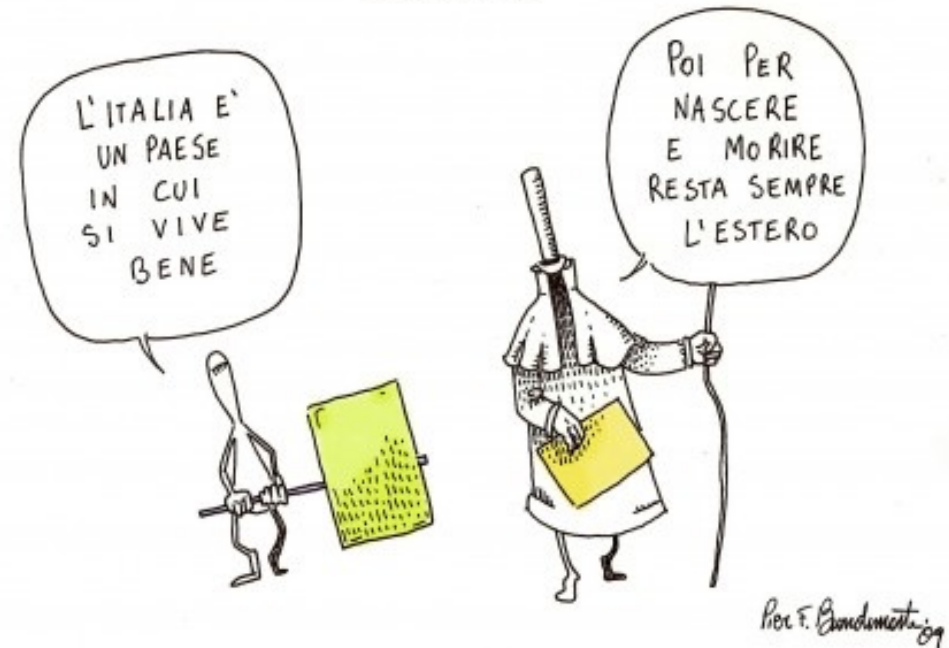 L'ITALIA E'
UN PAESE
IN CUI
SI VIVE
BENE
POI PER
NASCERE
E MORIRE
RESTA SEMPRE
L'ESTERO
Pier F.
'09